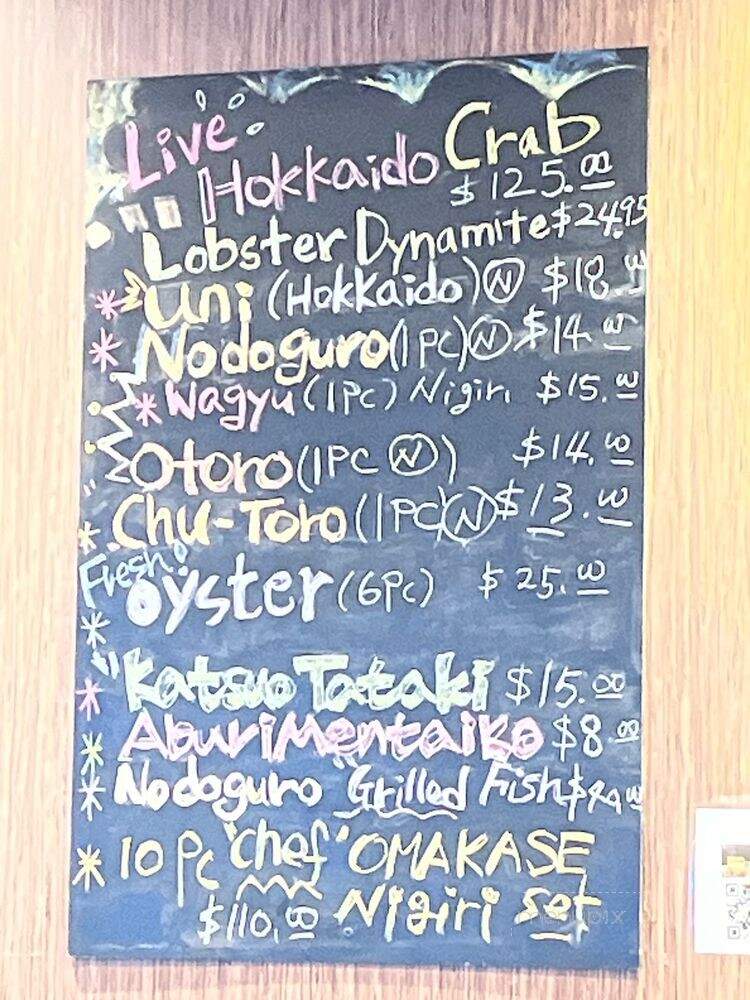 Live Hokkaido Crab
$125.00
Lobster Dynamite $24.95
Uni (Hokkaido) Ⓝ $18.00
Nodoguro (1PC) Ⓝ $14.00
Wagyu (1Pc) Nigiri $15.00
Otoro (1PC Ⓝ) $14.00
Chu-Toro (1PC) Ⓝ $13.00
Fresh!
Oyster (6Pc) $25.00
Katsuo Tataki $15.00
Aburi Mentaiko $8.00
Nodoguro Grilled Fish
10 Pc "chef" OMAKASE
$110.00 Nigiri Set